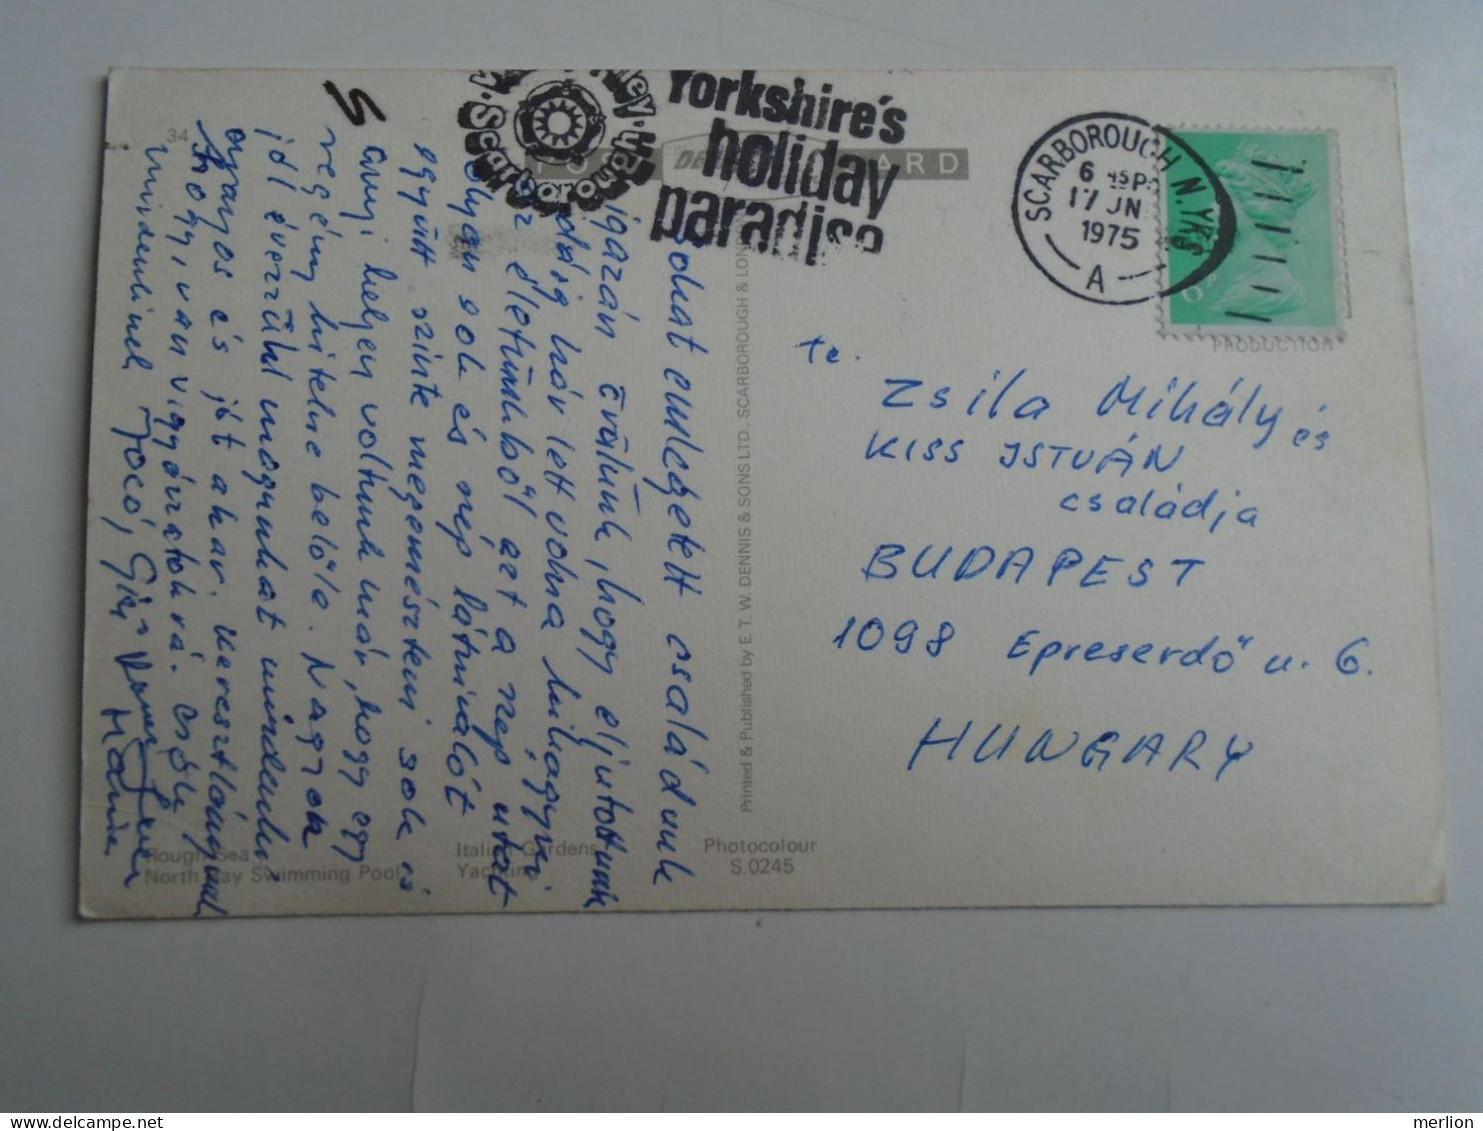 34
S
Scarborough
Yorkshire's
holiday
paradise
POST CARD
SCARBOROUGH N. YKS
6 45P
17 JN
1975
A
te.
Zsila Mihály és
KISS ISTVÁN
családja
BUDAPEST
1098 Epreserdő u. 6.
HUNGARY
Printed & Published by E. T. W. DENNIS & SONS LTD., SCARBOROUGH & LONDON
sokat emlegetett családunk
igazán örülünk, hogy eljutottunk
kár lett volna kihagyni
életünkből azt a szép utat
olyan sok és szép látnivalót
együtt szinte megemészteni sok is
regény kitelne belőle. Nagyon
annyi helyen voltunk már, hogy egy
jól érezzük magunkat mindenki
aranyos és jót akar. Keresztlányunk
hogy van vigyázzatok rá. Csók
mindenkinek Jocó, Gizi
Mária
Rough Sea
North Bay Swimming Pool
Italian Gardens
Yachting
Photocolour
S.0245
merlion